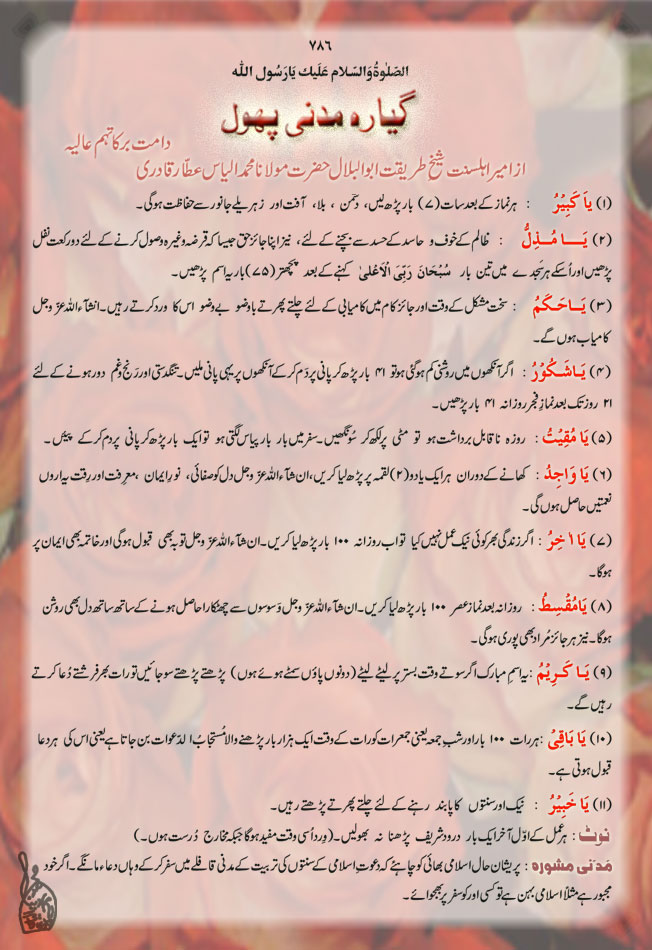 ۷۸٦
الصلوٰۃ والسلام علیك یا رسول اللہ
گیارہ مدنی پھول
دامت برکاتہم عالیہ
از امیر اہلسنت شیخ طریقت ابوالبلال حضرت مولانا محمد الیاس عطار قادری
(۱) یَا کَبِیْرُ : ہر نماز کے بعد سات (۷) بار پڑھ لیں، دشمن ، بلا، آفت اور زہریلے جانور سے حفاظت ہوگی۔
(۲) یَـــا مُـــذِلُّ : ظالم کے خوف و حاسد کے حسد سے بچنے کے لئے ، نیز اپنا جائز حق جیسا کہ قرضہ وغیرہ وصول کرنے کے لئے دو رکعت نفل
پڑھیں اور اُسکے ہر سجدے میں تین بار سُبْحَانَ رَبِّیَ الْاَعْلٰی کہنے کے بعد پچھتر (۷۵) بار یہ اسم پڑھیں۔
(۳) یَـا حَکَمُ : سخت مشکل کے وقت اور جائز کام میں کامیابی کے لئے چلتے پھرتے باوضو بے وضو اس کا ورد کرتے رہیں۔ انشآء اللہ عزّ وجل
کامیاب ہوں گے۔
(۴) یَـا شَکُوْرُ : اگر آنکھوں میں روشنی کم ہوگئی ہو تو ۴۱ بار پڑھ کر پانی پر دَم کر کے آنکھوں پر یہی پانی ملیں۔ تنگدستی اور رَنج و غم دور ہونے کے لئے
۲۱ روز تک بعد نمازِ فجر روزانہ ۴۱ بار پڑھیں۔
(۵) یَا مُقِیْتُ : روزہ ناقابل برداشت ہو تو مٹی پر لکھ کر سُونگھیں۔ سفر میں بار بار پیاس لگتی ہو تو ایک بار پڑھ کر پانی پر دم کر کے پیئیں۔
(۶) یَا وَاجِدُ : کھانے کے دوران ہر ایک یا دو (۲) لقمہ پر پڑھ لیا کریں، ان شآء اللہ عزّ وجل دل کو صفائی ، نورِ ایمان ، معرفت اور رِقت یہ اروں
نعمتیں حاصل ہوں گی۔
(۷) یَا اٰخِرُ : اگر زندگی بھر کوئی نیک عمل نہیں کیا تو اب روزانہ ۱۰۰ بار پڑھ لیا کریں۔ ان شآء اللہ عزّ وجل توبہ بھی قبول ہوگی اور خاتمہ بھی ایمان پر
ہوگا۔
(۸) یَامُقْسِطُ : روزانہ بعد نماز عصر ۱۰۰ بار پڑھ لیا کریں۔ ان شآء اللہ عزّ وجل وَسوسوں سے چھٹکارا حاصل ہونے کے ساتھ ساتھ دل بھی روشن
ہوگا۔ نیز ہر جائز مُراد بھی پوری ہوگی۔
(۹) یَـا کَـرِیْمُ : یہ اسمِ مبارک اگر سوتے وقت بستر پر لیٹے لیٹے (دونوں پاؤں سمٹے ہوئے ہوں) پڑھتے پڑھتے سو جائیں تو رات بھر فرشتے دُعا کرتے
رہیں گے۔
(۱۰) یَا بَاقِیُ : ہر رات ۱۰۰ بار اور شبِ جمعہ یعنی جمعرات کو رات کے وقت ایک ہزار بار پڑھنے والا مُستجابُ الدعوات بن جاتا ہے یعنی اس کی ہر دعا
قبول ہوتی ہے۔
(۱۱) یَا خَبِیْرُ : نیک اور سنتوں کا پابند رہنے کے لئے چلتے پھرتے پڑھتے رہیں۔
نوٹ : ہر عمل کے اوّل آخر ایک بار درود شریف پڑھنا نہ بھولیں۔ (وِرد اُسی وقت مفید ہوگا جبکہ مخارج دُرست ہوں۔)
مَدنی مشورہ : پریشان حال اسلامی بھائی کو چاہئے کہ دعوتِ اسلامی کے سنتوں کی تربیت کے مدنی قافلے میں سفر کر کے وہاں دعاء مانگے۔ اگر خود
مجبور ہے مثلاً اسلامی بہن ہے تو کسی اور کو سفر پر بھجوائے۔